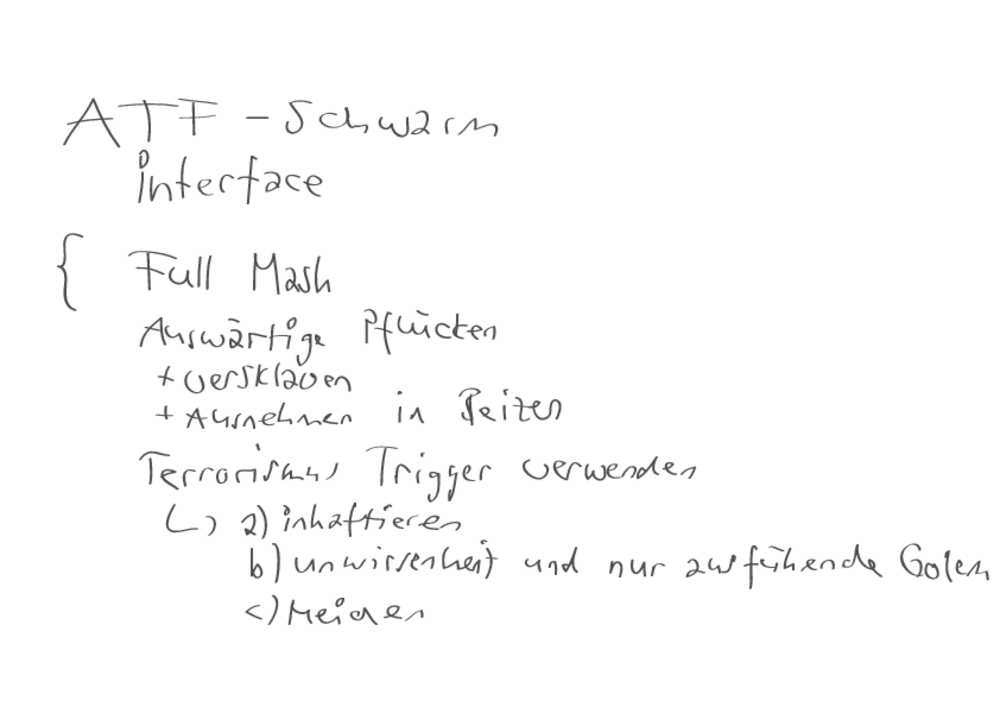 ATF - Schwarm
interface
{ Full Mash
Auswärtige Pflücken
+ versklaven
+ Ausnehmen in
Terrorismus Trigger verwenden
↳ a) inhaftieren
b) unwissenheit und nur ausführende Golem
c) Meiden